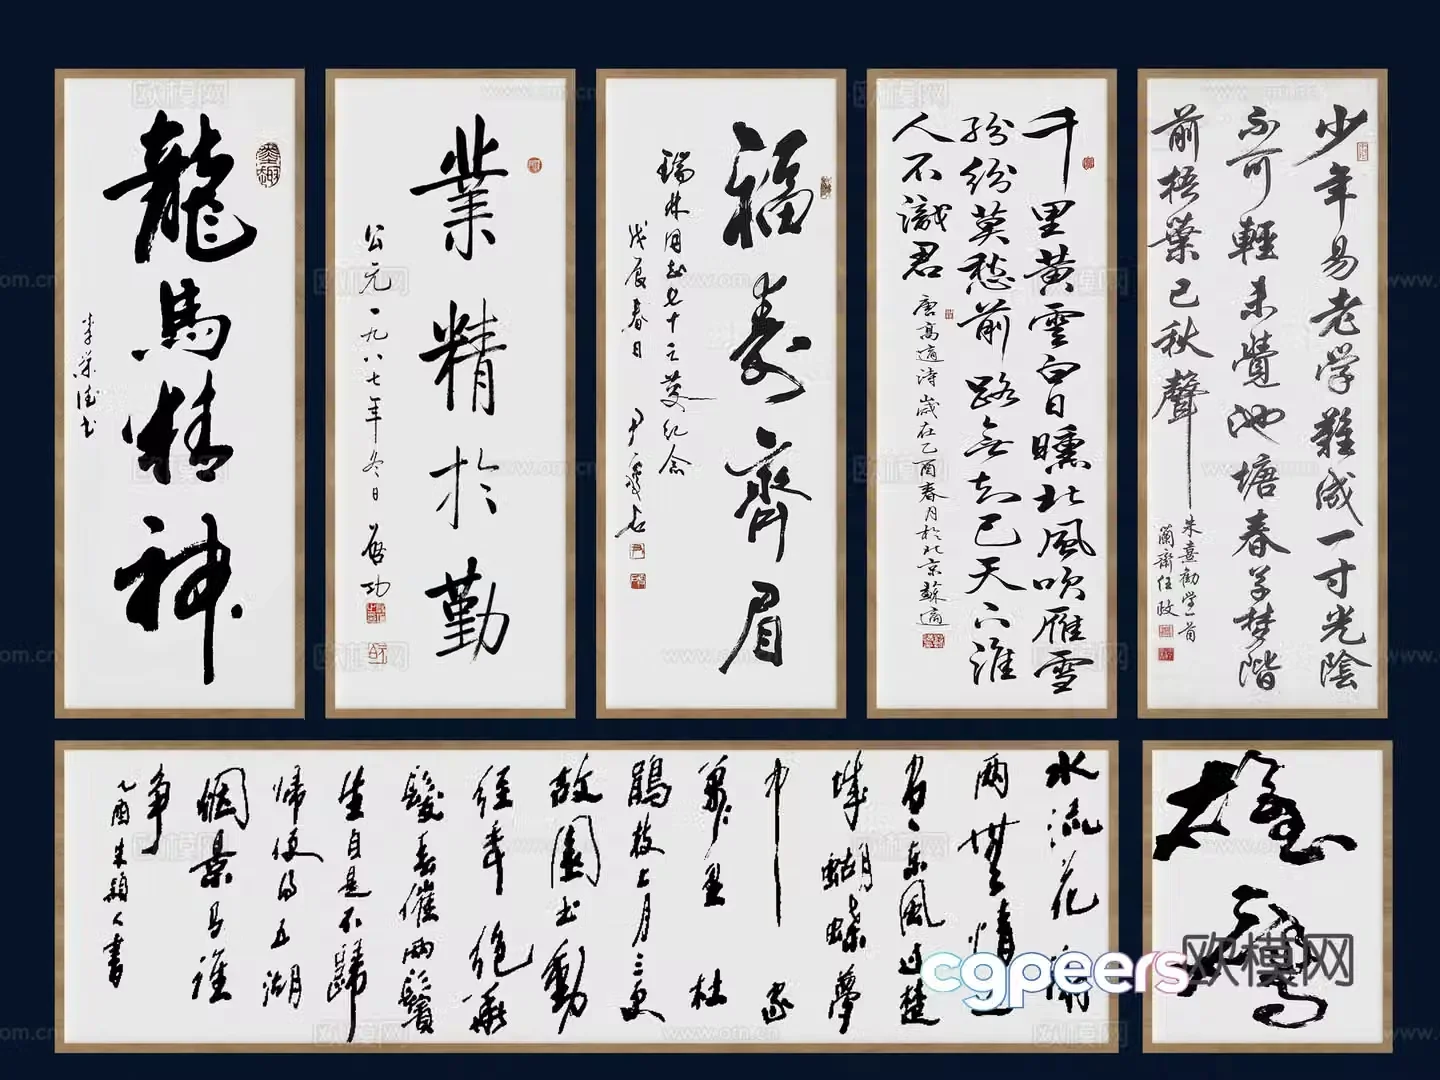 龍馬精神
李榮海书
業精於勤
公元一九八七年冬日 啓功
福壽齊眉
瑞林同志七十之慶纪念
戊辰春日
尹瘦石
千里黄雲白日曛北風吹雁雪
紛紛莫愁前路無知己天下誰
人不識君
唐高適诗歲在乙酉春月於北京蘇適
少年易老学難成一寸光陰
不可輕未覺池塘春草梦階
前梧葉已秋聲
朱熹勸學一首
蘭齋任政
水流花謝
两無情送
尽東風过楚
城蝴蝶夢
中家
萬里杜
鵑枝上月三更
故園书動
经年絶華
髮春催兩鬢
生自是不歸
帰便得五湖
烟景有誰
争
乙酉
人書
cgpeers
欧模网
欧模网
www.om.cn